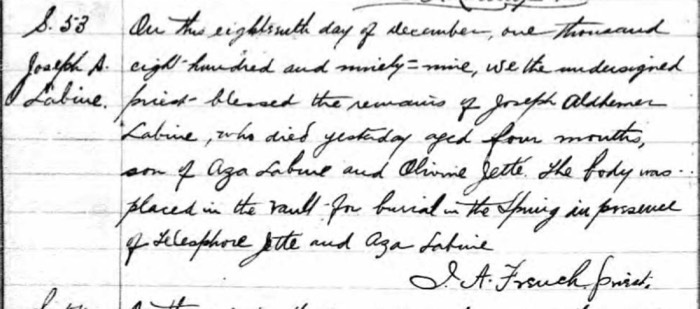 S. 53
Joseph A.
Labine.
On this eighteenth day of december, one thousand
eight-hundred and ninety=nine, we the undersigned
priest blessed the remains of Joseph Aldhemer
Labine, who died yesterday aged four months,
son of Aza Labine and Olivine Jette. The body was
placed in the vault for burial in the Spring in presence
of Telesphore Jette and Aza Labine
J. A. French, priest.